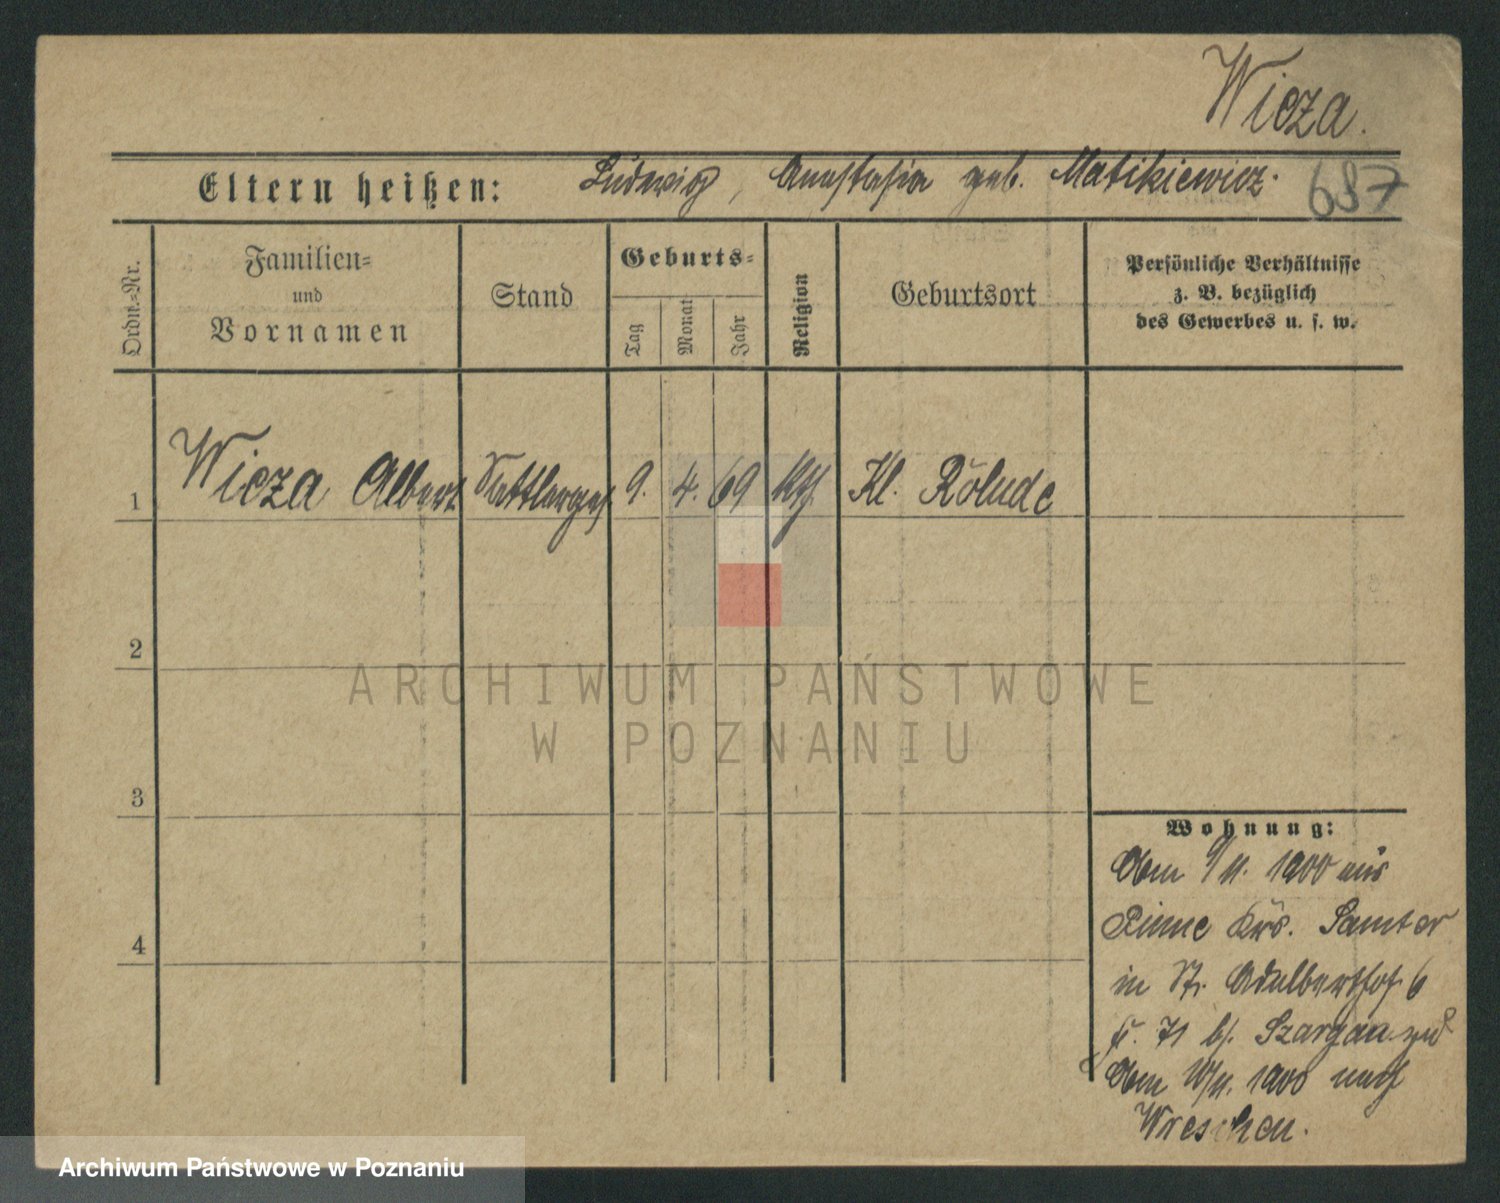 Wicza.
Eltern heißen: Ludwig, Anastasia geb. Matikiewicz.
687
Ordn.-Nr.
Familien-
und
Vornamen
Stand
Geburts-
Tag
Monat
Jahr
Religion
Geburtsort
Persönliche Verhältnisse
z. B. bezüglich
des Gewerbes u. s. w.
1 Wicza Albert Sattlerges. 9. 4. 69 kth. Kl.
2
3
4
Wohnung:
Abm 9/11. 1900 aus
Pinne Krs. Samter
in St. Adalberthof. 6
71 b/.
Abm 10/11. 1900 nach
Wreschen.
ARCHIWUM PAŃSTWOWE
W POZNANIU
Archiwum Państwowe w Poznaniu